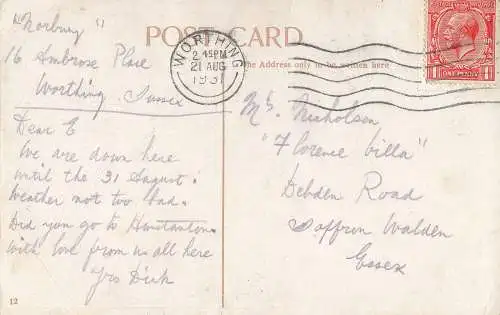 POST CARD
The Address only to be written here
WORTHING
2 45 PM
21 AUG
1931
ONE PENNY
"Norbury"
16 Ambrose Place
Worthing Sussex
Dear E
We are down here
until the 31 August.
Weather not too bad.
Did you go to Hunstanton
with love from us all here
Yrs Dick
12
Nicholson
"Florence Villa"
Debden Road
Saffron Walden
Essex